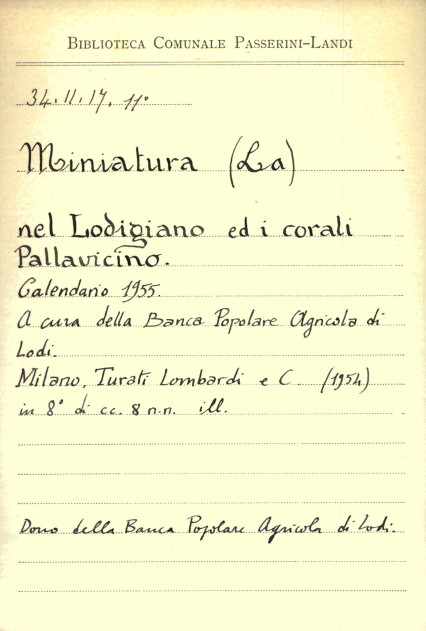 BIBLIOTECA COMUNALE PASSERINI-LANDI
34.II.17. 11°
Miniatura (La)
nel Lodigiano ed i corali
Pallavicino.
Calendario 1955.
A cura della Banca Popolare Agricola di
Lodi.
Milano, Turati Lombardi e C. (1954)
in 8° di cc. 8 n.n. ill.
Dono della Banca Popolare Agricola di Lodi.